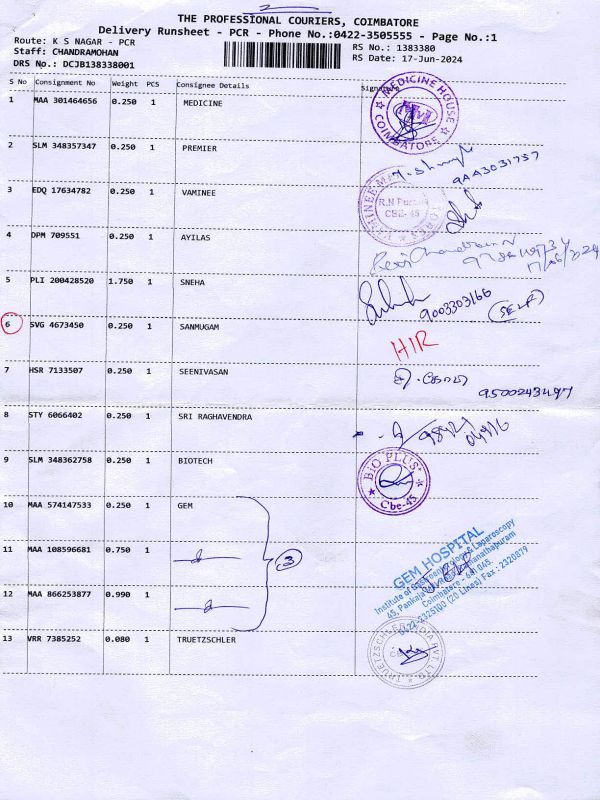 THE PROFESSIONAL COURIERS, COIMBATORE
Delivery Runsheet - PCR - Phone No.:0422-3505555 - Page No.:1
Route: K S NAGAR - PCR
RS No.: 1383380
Staff: CHANDRAMOHAN
RS Date: 17-Jun-2024
DRS No.: DCJB138338001
S No Consignment No Weight PCS Consignee Details Signature
1 MAA 301464656 0.250 1 MEDICINE
MEDICINE HOUSE
COIMBATORE
2 SLM 348357347 0.250 1 PREMIER
3 EDQ 17634782 0.250 1 VAMINEE
CBE-45
4 DPM 709551 0.250 1 AYILAS
5 PLI 200428520 1.750 1 SNEHA
9003303166
(SELF)
6 SVG 4673450 0.250 1 SANMUGAM
HIR
7 HSR 7133507 0.250 1 SEENIVASAN
8 STY 6066402 0.250 1 SRI RAGHAVENDRA
9 SLM 348362758 0.250 1 BIOTECH
BIO PLUS
Cbe-45
10 MAA 574147533 0.250 1 GEM
11 MAA 108596681 0.750 1
3
12 MAA 866253877 0.990 1
GEM HOSPITAL
Institute of Gastroenterology & Laparoscopy
45, Pankaja Mill Road, Ramanathapuram
Coimbatore - 641 045.
0422-2325100 (20 Lines) Fax : 2320879
13 VRR 7385252 0.080 1 TRUETZSCHLER
TRUETZSCHLER INDIA PVT. LTD